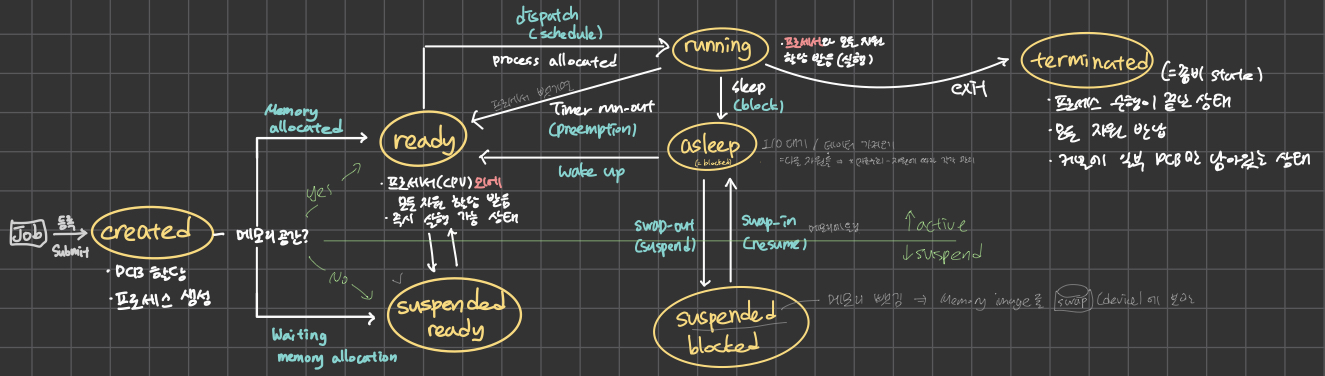 dispatch
(schedule)
process allocated
running
· 프로세서와 모든 자원
할당 받음 (실행)
terminated
(=좀비 state)
· 프로세스 수행이 끝난 상태
· 모든 자원 반납
· 커널에 일부 PCB만 남아있는 상태
exit
프로세서 뺏기어
Timer run-out
(preemption)
sleep
(block)
Memory
allocated
ready
asleep
(=blocked)
I/O 대기 /
wake up
· 프로세서(CPU) 외에
모든 자원 할당 받음
· 즉시 실행 가능 상태
yes
Job
등록
submit
created
메모리 공간?
· PCB 할당
· 프로세스 생성
swap-out
(suspend)
swap-in
(resume)
↑active
↓suspend
No
suspended
ready
suspended
blocked
메모리 뺏김 ⇒ Memory image를 swap (device)에 보관
Waiting
memory allocation